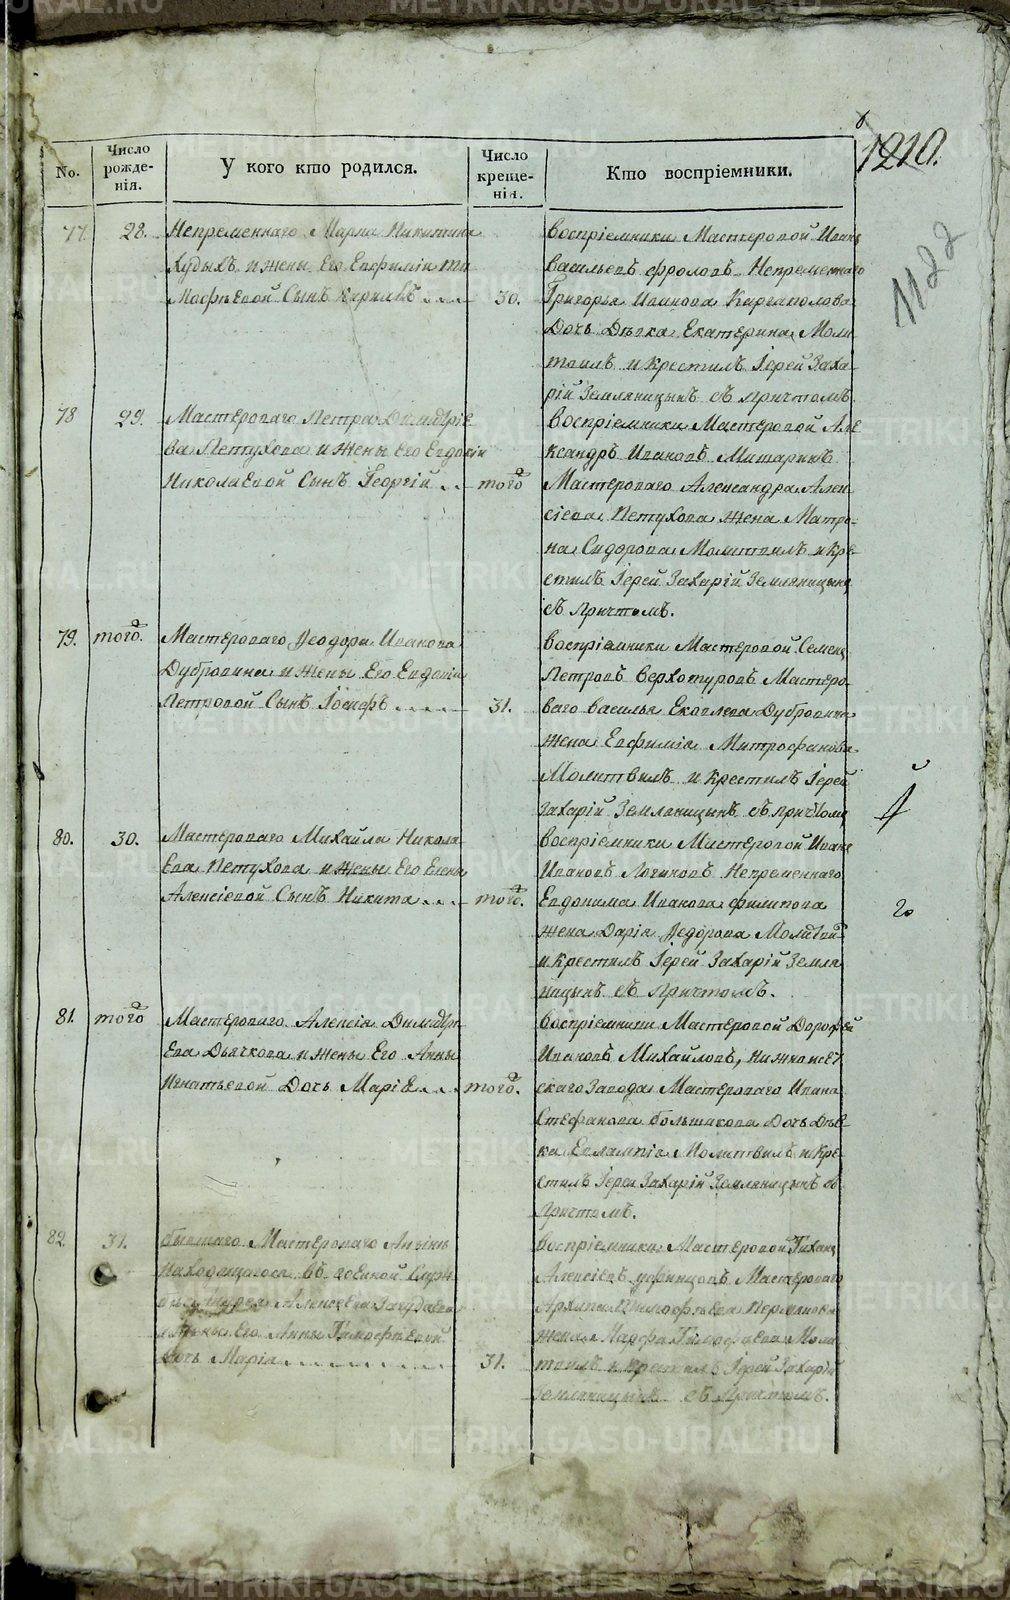 1210.
1122
No.
Число рожде-нія.
У кого кто родился.
Число креще-нія.
Кто воспріемники.
77.
28.
Непременнаго Марка Никитина
Худыхъ и жены Его Евфиміи Ти
мофѣевой Сынъ Кирилъ
30.
Воспріемники Мастеровой Иванъ
Васильевъ Фроловъ Непременнаго
Григорья Иванова Каргаполова
Дочь Дѣвка Екатерина, Моли
твилъ и крестилъ Іерей Заха
рій Земляницынъ съ Причтомъ.
78
29.
Мастероваго Петра Димитріе
ва Петухова и жены Его Евдокіи
Николаевой Сынъ Георгій
того
Воспріемники Мастеровой Але
ксандръ Ивановъ Митаринъ
Мастероваго Александра Алек
сіева Петухова жена Матро
на Сидорова Молитвилъ и кре
стилъ Іерей Захарій Земляницынъ
съ Причтомъ.
79.
того.
Мастероваго Ѳеодора Иванова
Дубровина и жены Его Евдокіи
Петровой Сынъ Іосифъ
31.
Воспріемники Мастеровой Семенъ
Петровъ Верхотуровъ Мастеро
ваго Василья Яковлева Дубровина
жена Евфимія Митрофанова
Молитвилъ и крестилъ Іерей
Захарій Земляницынъ съ причтомъ
80.
30.
Мастероваго Михайла Никола
Ева Петухова и жены Его Елены
Алексіевой Сынъ Никита
того.
Воспріемники Мастеровой Иванъ
Ивановъ Логиновъ Непременнаго
Евдокима Иванова Филипова
жена Дарія Ѳедорова Молитвилъ
и крестилъ Іерей Захарій Земля
ницынъ съ Причтомъ.
81.
того
Мастероваго Алексія Димитрі
Ева Дьячкова и жены Его Анны
Игнатьевой Дочь Марія
того.
Воспріемники Мастеровой Дорофей
Ивановъ Михайловъ, Нижнеисет
скаго Завода Мастероваго Ивана
Стефанова Большакова Дочь Дѣв
ка Евлампія Молитвилъ и кре
стилъ Іерей Захарій Земляницынъ съ
Причтомъ.
82.
31.
бывшаго Мастероваго
Находящагося въ военной Служ
Андрея Алексѣева
и жены Его Анны Тимофѣевой
Дочь Марія
31.
Воспріемники Мастеровой
Алексіевъ Мастероваго
Архипа Тимофѣева
жена Марфа Тимофѣева Моли
твилъ и крестилъ Іерей Захарій
Земляницынъ съ Причтомъ.
METRIKI.GASO-URAL.RU